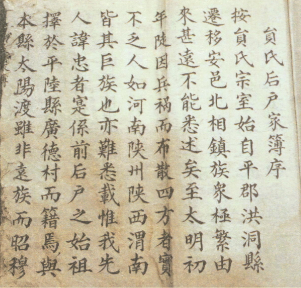 貟氏后户家簿序
按貟氏宗室始自平郡洪洞縣
遷移安邑北相鎮族衆極繁由
來甚遠不能悉述矣至太明初
年陡因兵禍而布散四方者實
不乏人如河南陝州陝西渭南
皆其巨族也亦難悉載惟我先
人諱忠者寔係前后户之始祖
擇於平陸縣廣德村而籍焉與
本縣太陽渡雖非遠族而昭穆